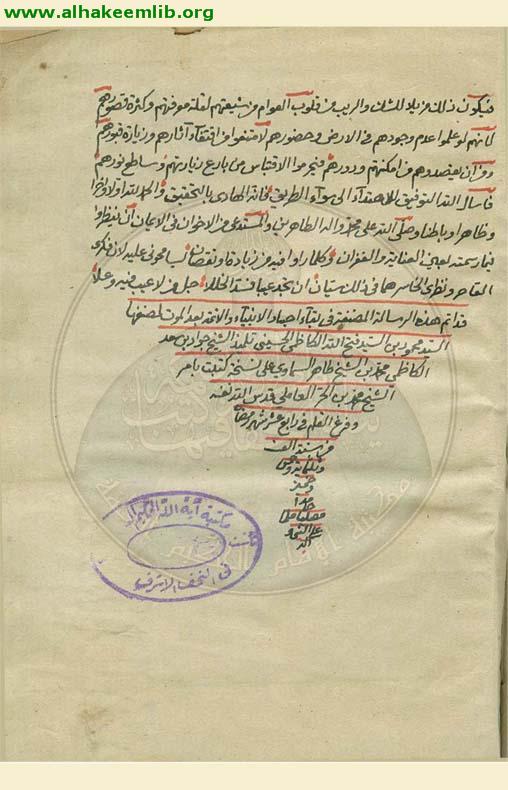 www.alhakeemlib.org
فيكون ذلك مزيلا للشك والريب من قلوب العوام من شيعتهم لقلة معرفتهم وكثرة قصورهم
لأنهم لو علموا عدم وجودهم في الارض وحضورهم لامتنعوا من اقتفاء آثارهم وزيارة قبورهم
ومن أن يقصدوهم في امكنتهم ودورهم فيحرموا الاقتباس من زيارتهم وساطع نورهم
فاسال الله التوفيق للاهتداء الى سواء الطريق فانه الهادي بالتحقيق والحمد لله اولا وآخرا
وظاهرا وباطنا وصلى الله على محمد واله الطاهرين والمستدعى من الاخوان في الايمان أن ينظروا
فيما رسمته بعين العناية والغفران وكلما راوا فيه من زيادة او نقصان لان فكري
القاصر ونظري الخاسر هما في ذلك سيان ان تجد عيبا فسد الخللا جل من لا عيب فيه وعلا
قد تم هذه الرسالة المصنفة في بقاء اجساد الانبياء والائمة بعد الموت لمصنفها
السيد محمود بن السيد فتح الله الكاظمي الحسيني تلميذ الشيخ جواد بن سعد
الكاظمي محمد بن الشيخ طاهر السماوي على نسخة كتبت بامر
الشيخ محمد بن الحر العاملي قدس الله نفسه
وفرغ القلم في رابع عشر شهر رمضان
من سنة الف
وثلثماية وخمس
حامدا
مصليا
مكتبة آية الله الحكيم العامة
في النجف الاشرف